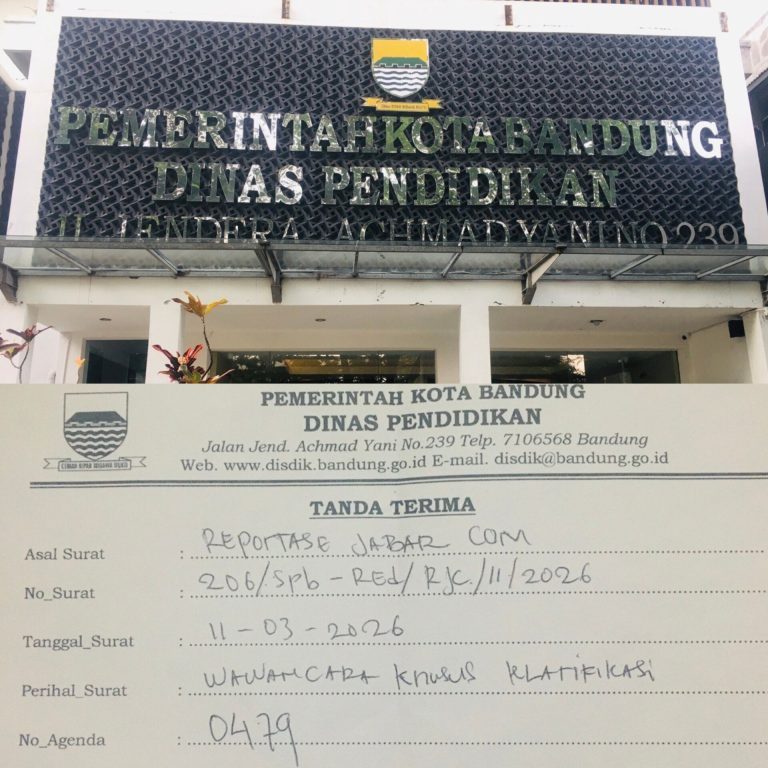 PEMERINTAH KOTA BANDUNG
DINAS PENDIDIKAN
JL JENDERA ACHMAD YANI NO 239
PEMERINTAH KOTA BANDUNG
DINAS PENDIDIKAN
Jalan Jend. Achmad Yani No.239 Telp. 7106568 Bandung
Web. www.disdik.bandung.go.id E-mail. disdik@bandung.go.id
TANDA TERIMA
Asal Surat : REPORTASE JABAR COM
No_Surat : 206/Spb - REd/ RJC./11/2026
Tanggal_Surat : 11 - 03 - 2026
Perihal_Surat : WAWANCARA KHUSUS KLARIFIKASI
No_Agenda : 0479